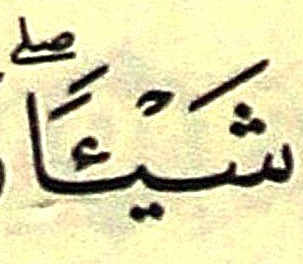 شَيْـَٔاۖ